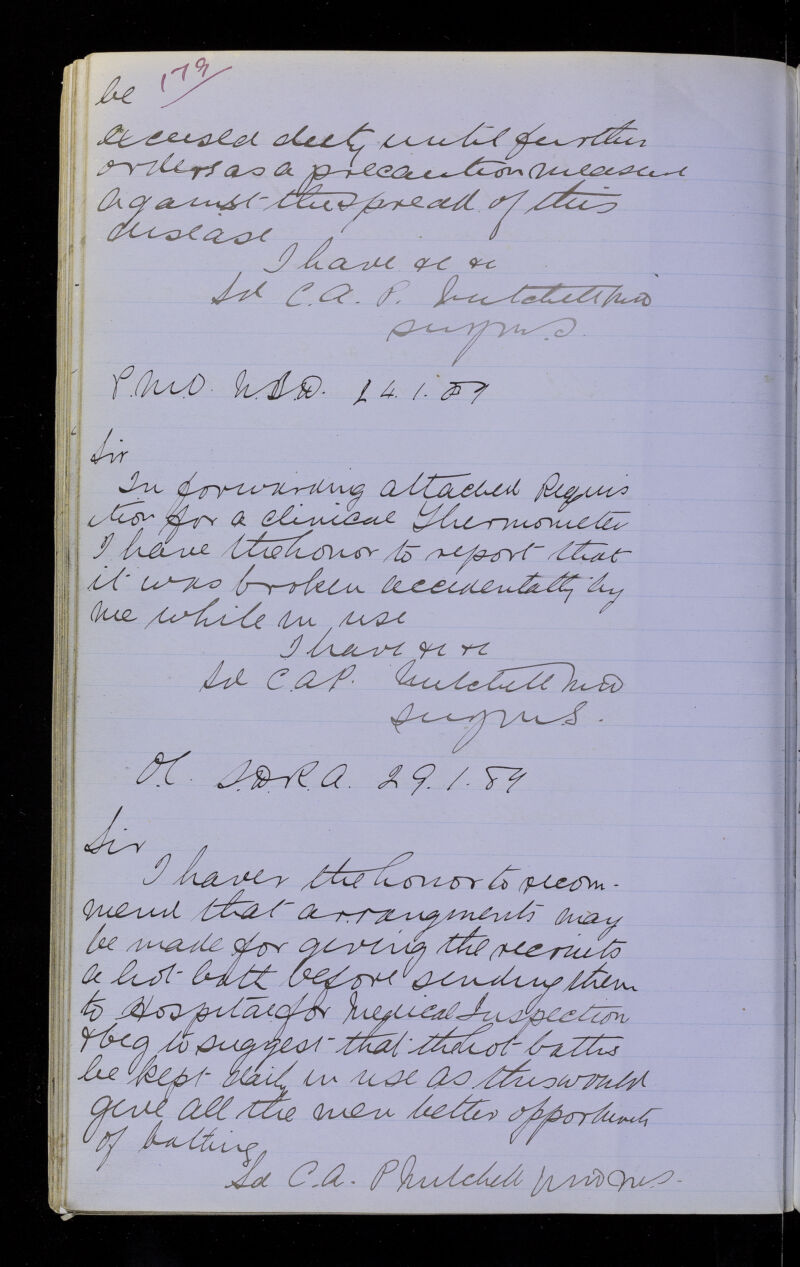 179
be
excused duty until further
orders as a precaution measure
against the spread of this
disease
I have &c &c
Sd C.A.P. Mutchell MD
Surg M.S.
P.M.O. N.S.D. 24.1.89
Sir
In forwarding attached Requis
ition for a clinical Thermometer
I have the honor to report that
it was broken accidentally by
me while in use
I have &c &c
Sd C.A.P. Mutchell MD
Surg M.S.
O.C. S.D.R.A. 29.1.89
Sir
I haver the honor to recom-
mend that arrangments may
be made for giving the recruits
a hot bath before sending them
to Hospital for Medical Inspection
& beg to suggest that the hot baths
be kept daily in use as this would
give all the men better opportunity
of bathing
Sd C.A. P Mutchell MD M.S.